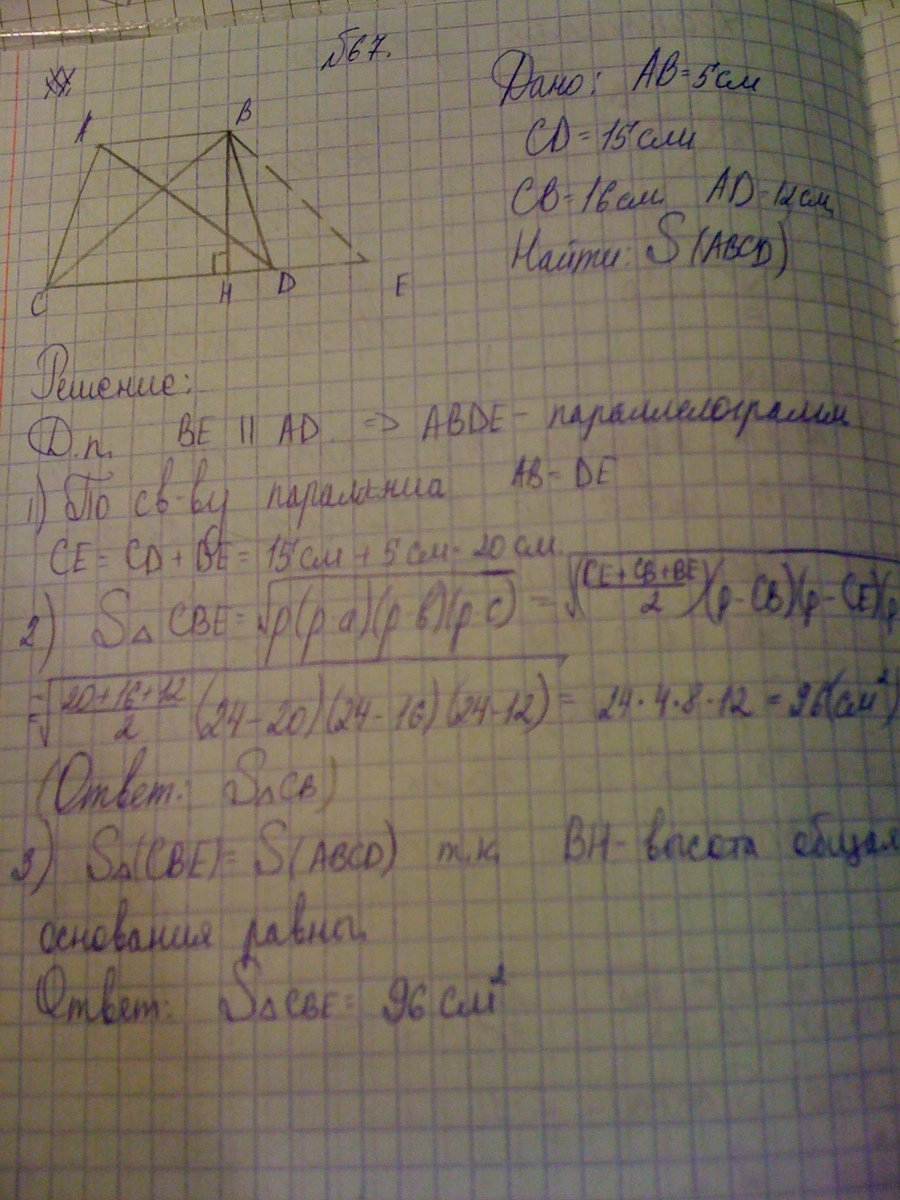 №67.
A
B
C
H
D
E
Дано: AB=5см
CD=15см
CB=16см AD=12см
Найти: S(ABCD)
Решение:
Д.п. BE || AD. => ABDE - параллелограмм
1) По св-ву AB=DE
CE=CD+DE=15см+5см=20см.
2) S△CBE=√p(p-a)(p-b)(p-c) = √(CE+CB+BE/2)(p-CB)(p-CE)(p
=√20+16+12/2 (24-20)(24-16)(24-12) = 24·4·8·12 = 96(см²)
(Ответ: S△CB)
3) S△(CBE)=S(ABCD) т.к. BH-высота общая
основания равны.
Ответ: S△CBE= 96 см²